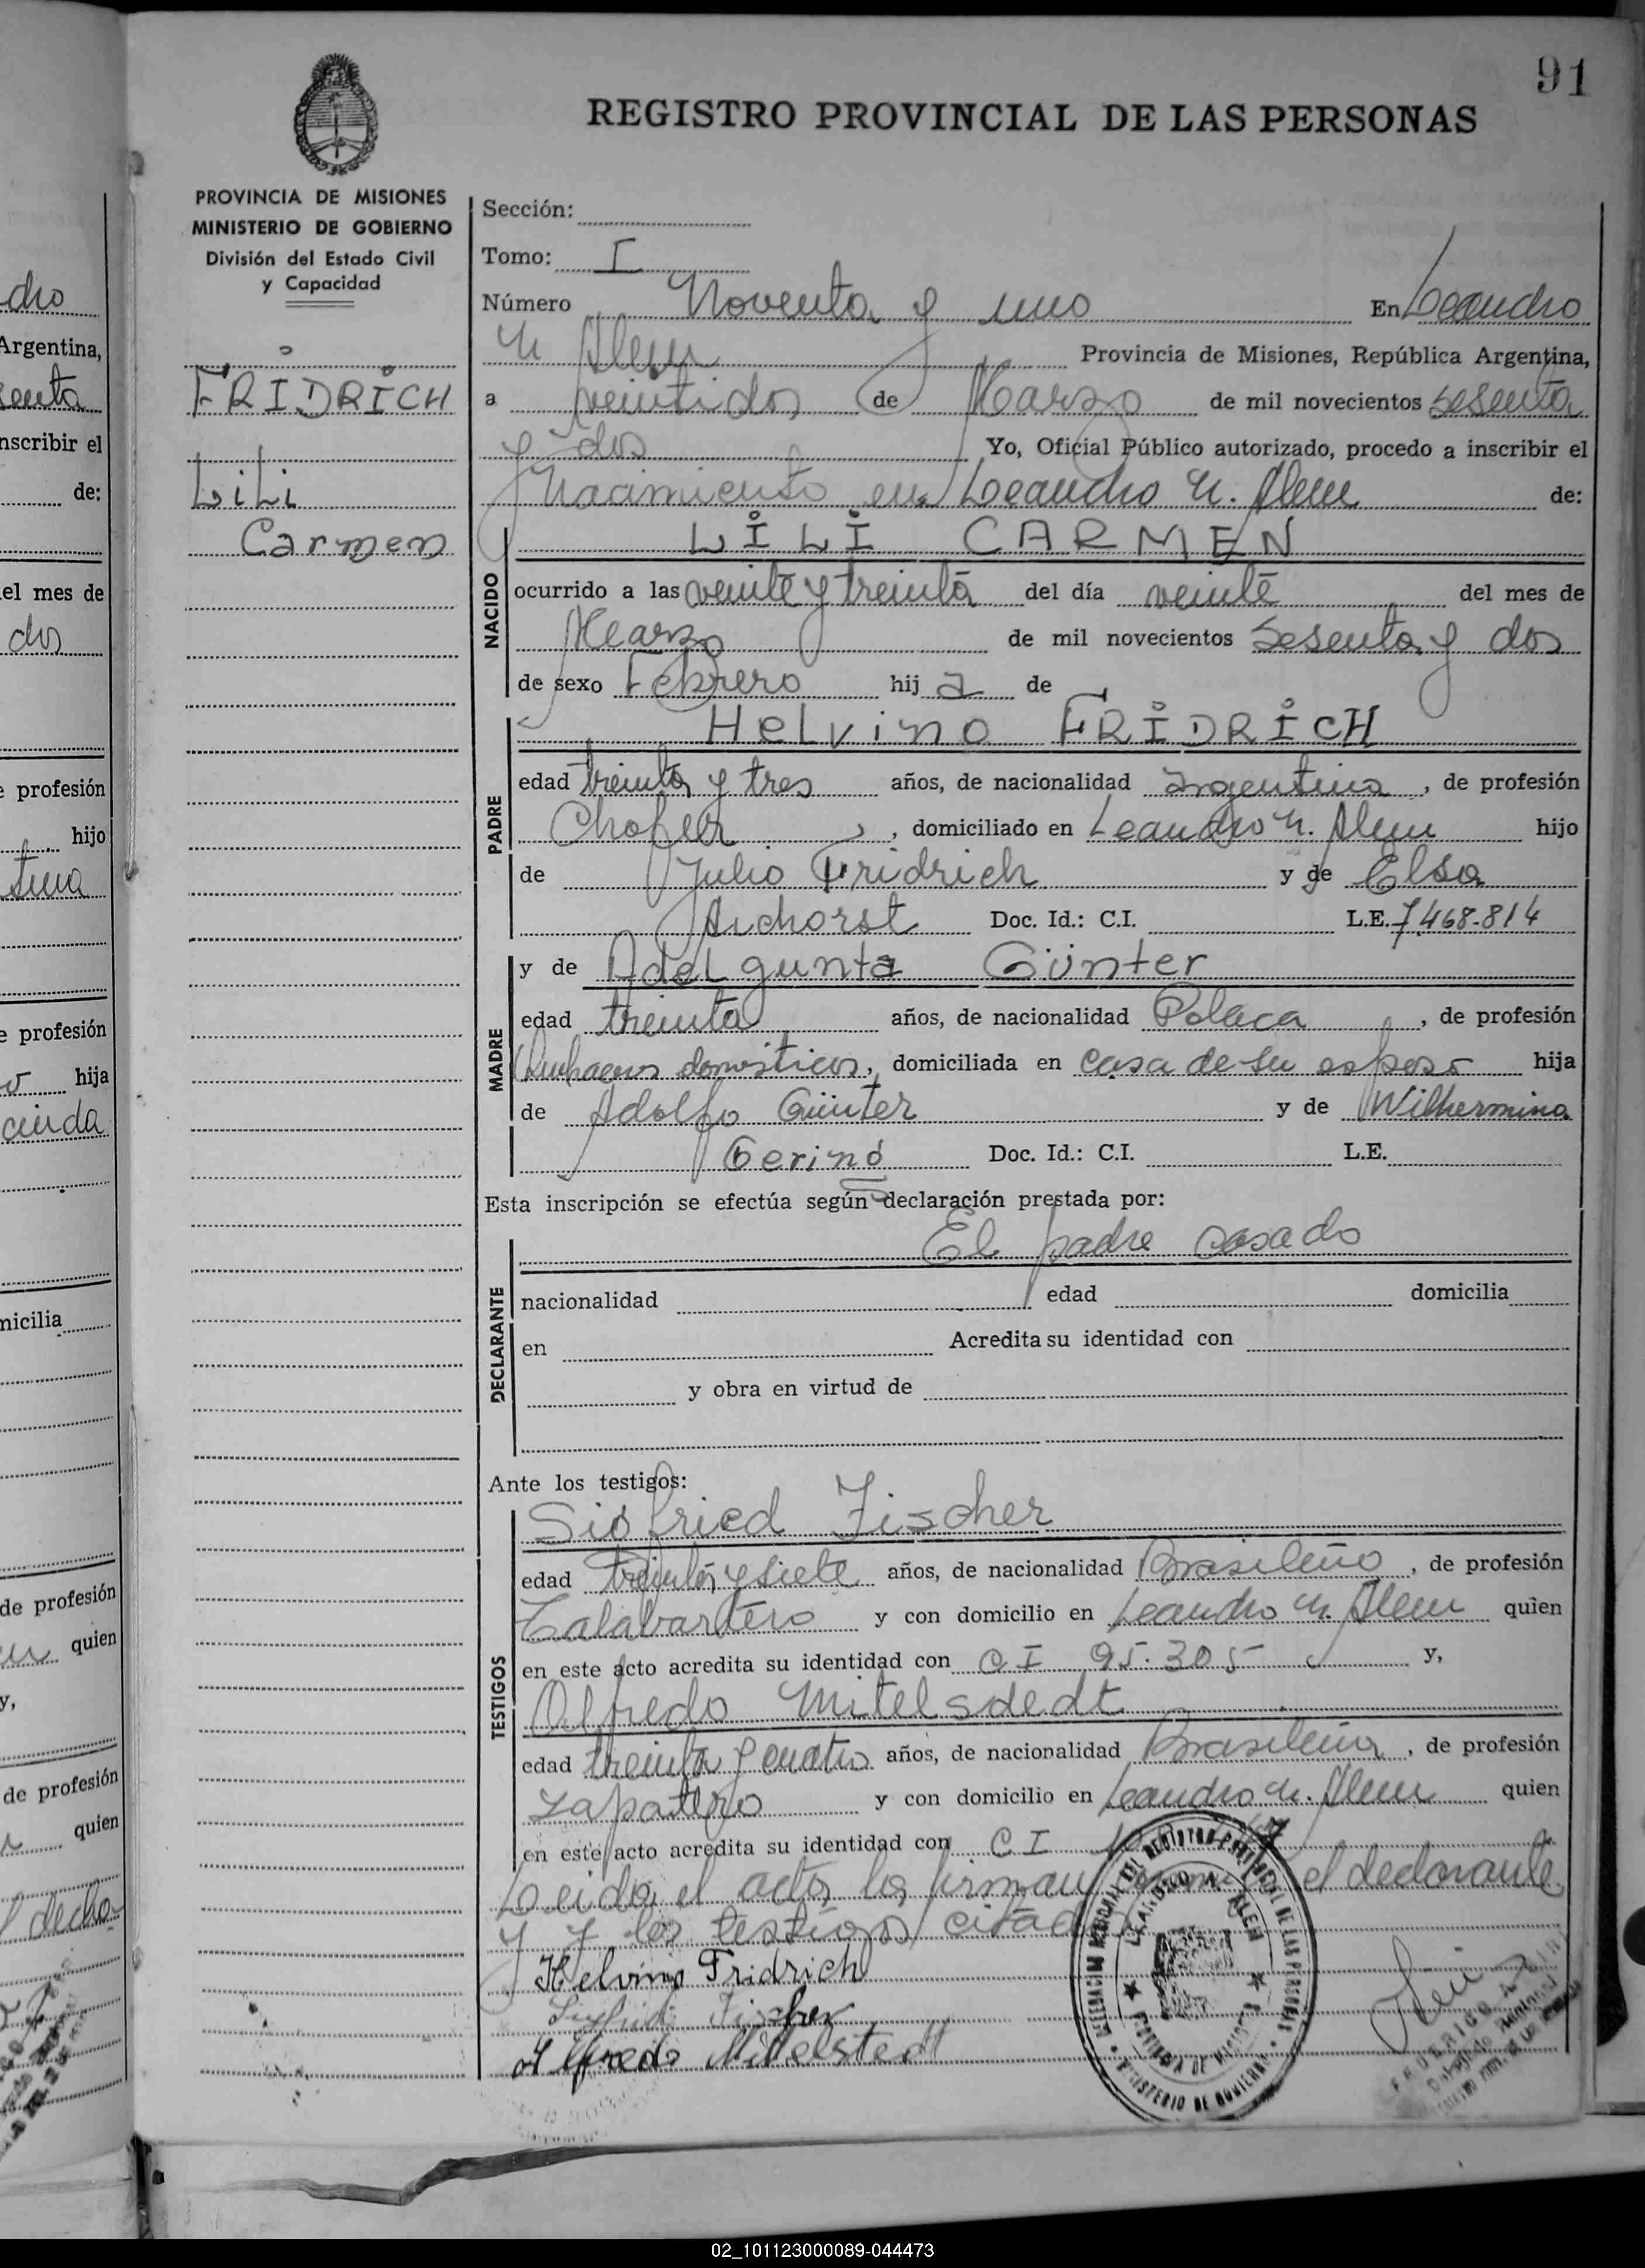 91
REGISTRO PROVINCIAL DE LAS PERSONAS
PROVINCIA DE MISIONES
MINISTERIO DE GOBIERNO
División del Estado Civil
y Capacidad
FRIDRICH
LiLi
Carmen
Sección:
Tomo: I
Número Noventa y uno En Leandro
N. Alem Provincia de Misiones, República Argentina,
a veintidos de Marzo de mil novecientos sesenta
y dos Yo, Oficial Público autorizado, procedo a inscribir el
Nacimiento en Leandro N. Alem de:
NACIDO
LILI CARMEN
ocurrido a las veinte y treinta del día veinte del mes de
Marzo de mil novecientos sesenta y dos
de sexo Febrero hij a de
PADRE
Helvino FRIDRICH
edad treinta y tres años, de nacionalidad argentina, de profesión
Chofer, domiciliado en Leandro N. Alem hijo
de Julio Fridrich y de Elsa
Doc. Id.: C.I. L.E. 7.468.814
MADRE
y de Adelgunta Günter
edad treinta años, de nacionalidad Polaca, de profesión
Quehaceres domésticos, domiciliada en casa de su esposo hija
de Adolfo Günter y de Wilhermina
Gerino Doc. Id.: C.I. L.E.
Esta inscripción se efectúa según declaración prestada por:
DECLARANTE
El padre casado
nacionalidad edad domicilia
en Acredita su identidad con
y obra en virtud de
Ante los testigos:
TESTIGOS
Sigfried Fischer
edad treinta y siete años, de nacionalidad Brasileño, de profesión
Talabartero y con domicilio en Leandro N. Alem quien
en este acto acredita su identidad con C I 95.305 y,
Alfredo Mitelsdedt
edad treinta y cuatro años, de nacionalidad Brasileña, de profesión
zapatero y con domicilio en Leandro N. Alem quien
en este acto acredita su identidad con C I
Leida el acta la firman el declarante
y los testigos
Helvino Fridrich
Fischer
Alfredo Mittelstedt
LEANDRO N. ALEM
PROVINCIA DE MISIONES
MINISTERIO DE GOBIERNO
02_101123000089-044473